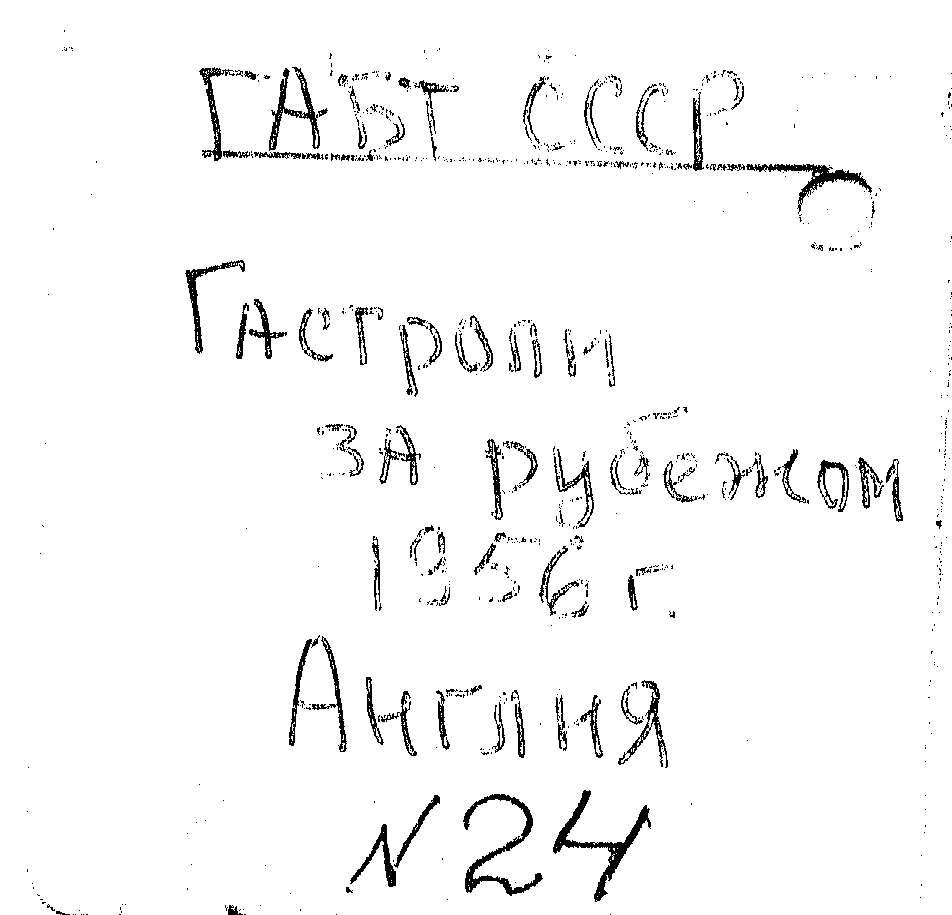 ГАБТ СССР
Гастроли
за рубежом
1956 г.
Англия
N 24